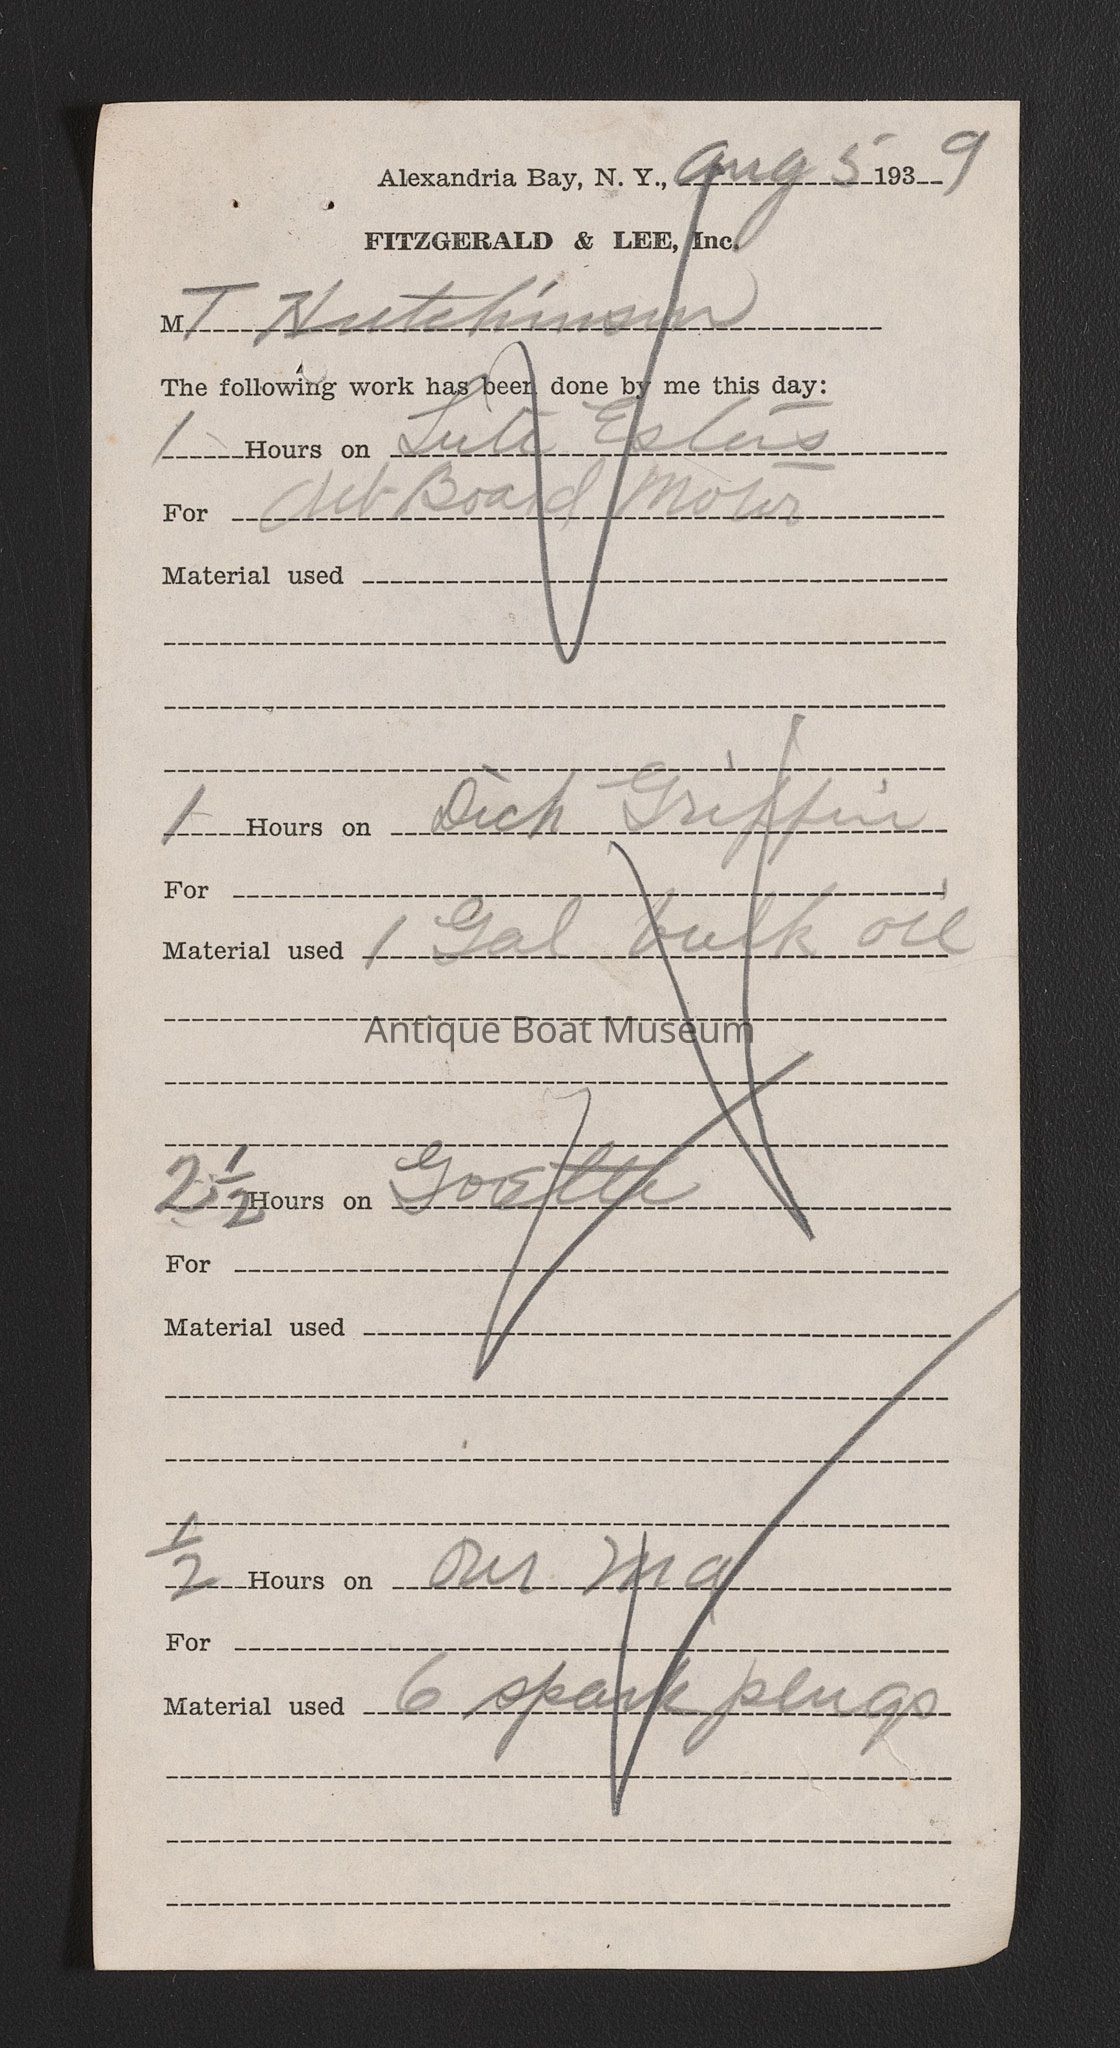 Alexandria Bay, N. Y., Aug 5 1939
FITZGERALD & LEE, Inc.
M T Hutchinson
The following work has been done by me this day:
1 Hours on
For Out Board Motor
Material used
1 Hours on Dick Griffin
For
Material used 1 Gal bulk oil
Antique Boat Museum
2 1/2 Hours on Goette
For
Material used
1/2 Hours on our
For
Material used 6 spark plugs